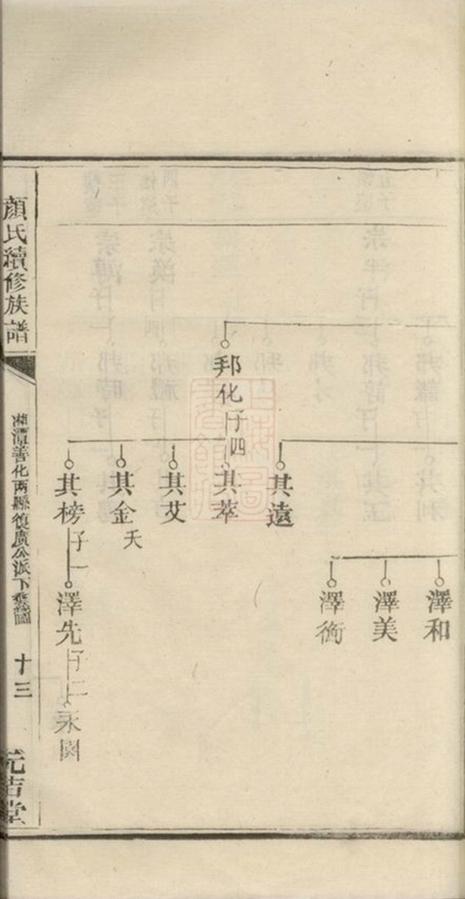 澤和
澤美
澤衡
其遠
邦化子四
其萃
其艾
其金夭
其榜子一
澤先子二
永園
顏氏續修族譜
湘潭善化兩縣復廣公派下垂絲圖
十三
元吉堂